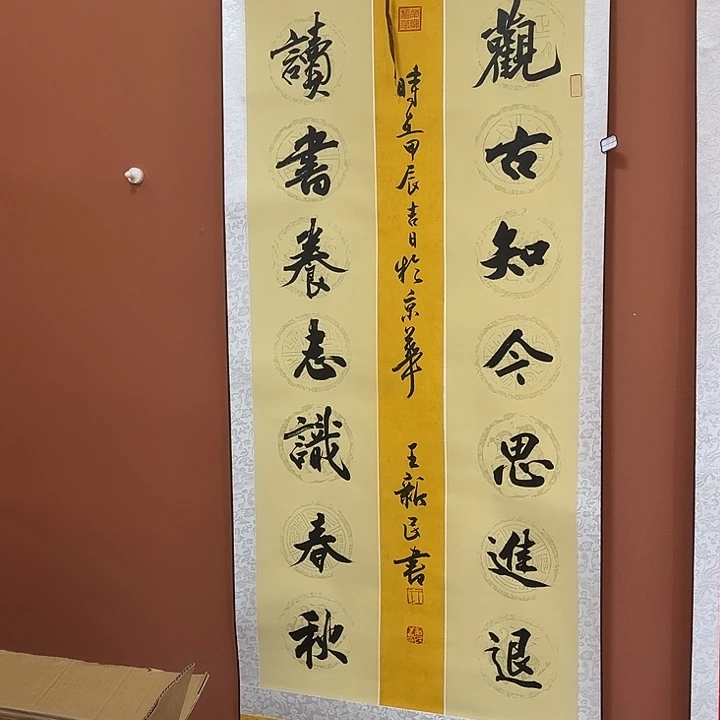 觀古知今思進退
讀書養志識春秋
時在甲辰吉日於京華 王新民書